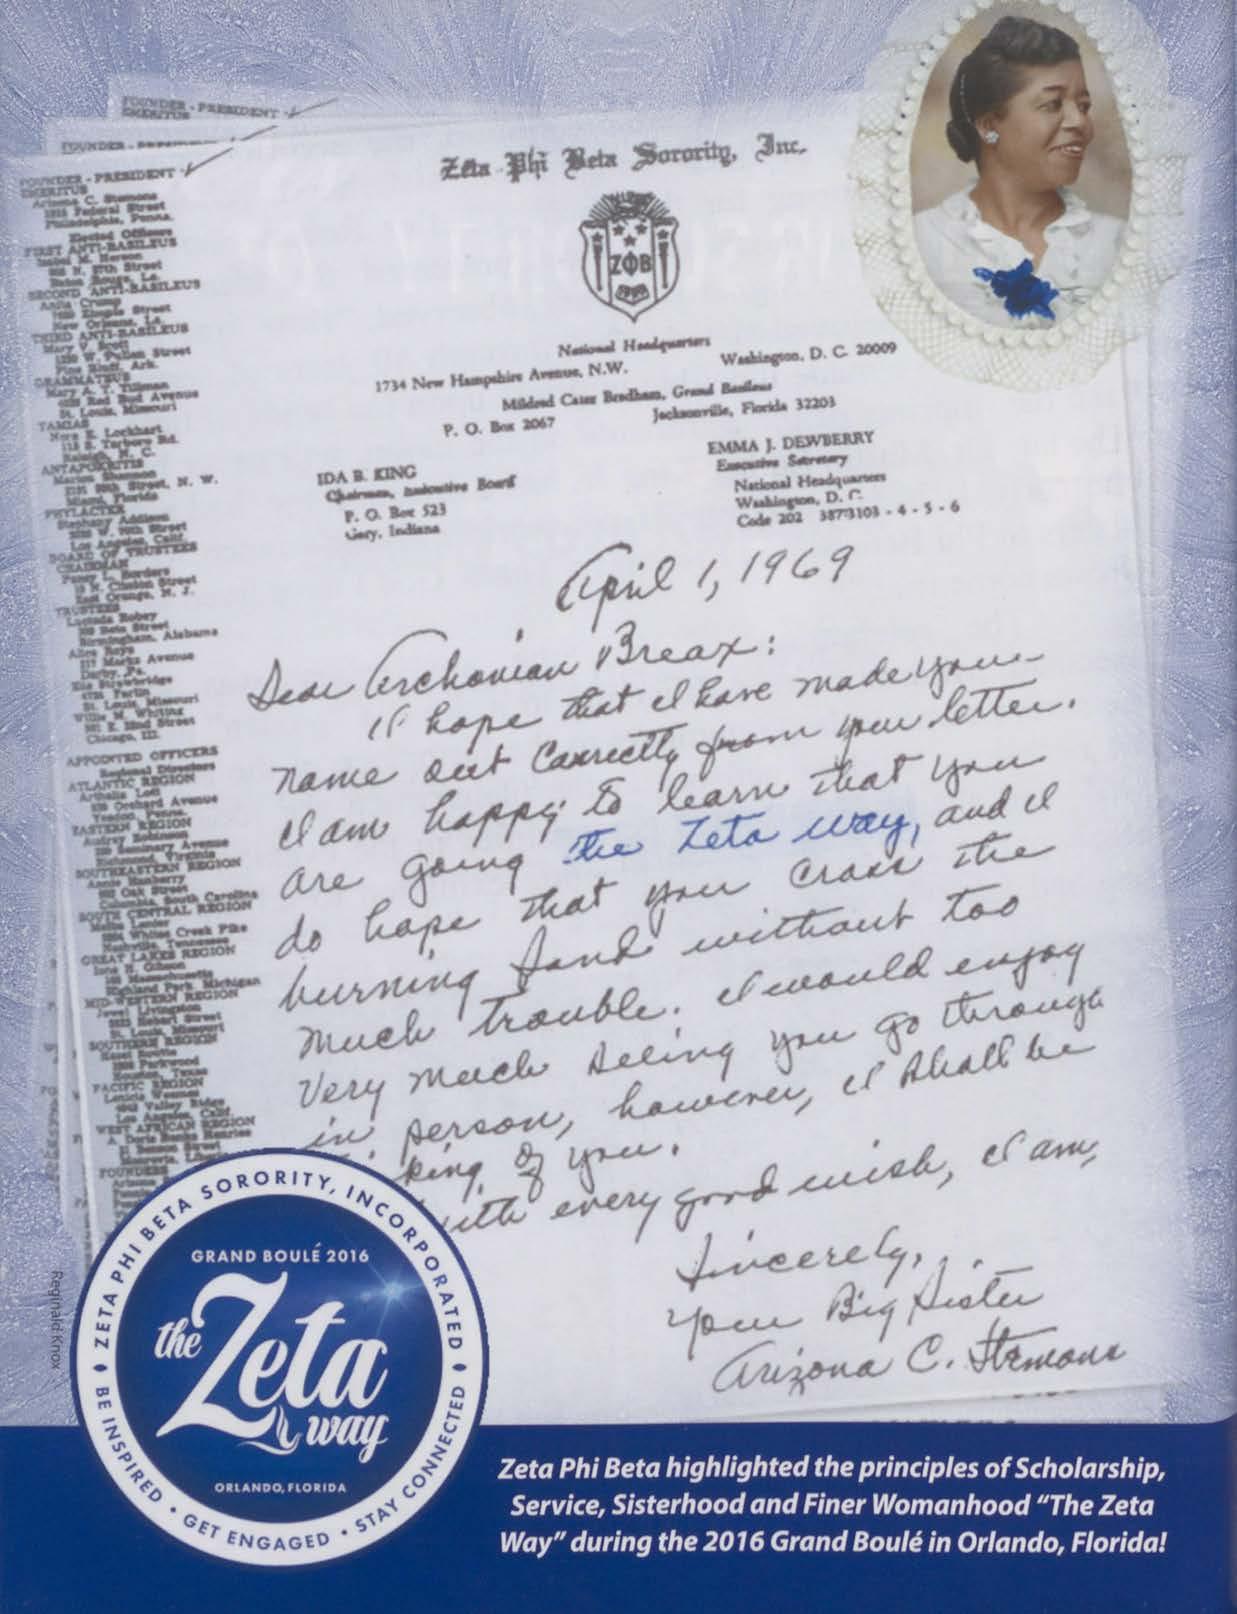 FOUNDER - PRESIDENT
EMERITUS
FOUNDER - PRESIDENT
FOUNDER - PRESIDENT
EMERITUS
Arizona C. Stemons
Federal Street
Philadelphia, Penna.
Elected Officers
FIRST ANTI-BASILEUS
Isabel M. Herson
N. 27th Street
Baton Rouge, La.
SECOND ANTI-BASILEUS
Street
New Orleans, La.
THIRD ANTI-BASILEUS
Mary V. Scott
W. Pullen Street
Pine Bluff, Ark.
GRAMMATEUS
Mary A. T. Tillman
Red Bud Avenue
St. Louis, Missouri
TAMIAS
Nora E. Lockhart
S. Tarboro Rd.
Raleigh, N. C.
ANTAPOKRITIS
Marion Shannon
Street, N. W.
Miami, Florida
PHYLACTER
Stephany Addison
W. 70th Street
Los Angeles, Calif.
BOARD OF TRUSTEES
CHAIRMAN
Borders
N. Clinton Street
East Orange, N. J.
TRUSTEES
Lucinda Robey
Beta Street
Birmingham, Alabama
Alice
Marks Avenue
Darby, Pa.
St. Louis, Missouri
Willie M. Whiting
Street
Chicago, Ill.
APPOINTED OFFICERS
Regional Directors
ATLANTIC REGION
Orchard Avenue
Yeadon, Penna.
EASTERN REGION
Audrey Robinson
Avenue
Richmond, Virginia
SOUTHEASTERN REGION
Annie Hanberry
Oak Street
Columbia, South Carolina
SOUTH CENTRAL REGION
Whites Creek Pike
Nashville, Tennessee
GREAT LAKES REGION
Gibson
Massachusetts
Highland Park, Michigan
MID-WESTERN REGION
Jewel Livingston
Hebert Street
St. Louis, Missouri
SOUTHERN REGION
Hazel
Parkwood
Houston, Texas
PACIFIC REGION
Valley Ridge
Los Angeles, Calif.
WEST AFRICAN REGION
A. Doris Banks Henries
Benson Street
Monrovia, Liberia
FOUNDERS
Zeta Phi Beta Sorority, Inc.
ΖΦΒ
National Headquarters
1734 New Hampshire Avenue, N.W. Washington, D. C. 20009
Mildred Cater Bradham, Grand Basileus
P. O. Box 2067 Jacksonville, Florida 32203
IDA B. KING
Chairman, Executive Board
P. O. Box 523
Gary, Indiana
EMMA J. DEWBERRY
Executive Secretary
National Headquarters
Washington, D. C.
Code 202 387-3103 - 4 - 5 - 6
April 1, 1969
Dear Archonian Breax:
I hope that I have made your
name out correctly from your letter.
I am happy to learn that you
are going the Zeta way, and I
do hope that you cross the
burning sand without too
much trouble. I would enjoy
very much seeing you go through
in person, however, I shall be
king of you.
ith every good wish, I am,
Sincerely,
Your Big Sister
Arizona C. Stemons
ZETA PHI BETA SORORITY, INCORPORATED
GRAND BOULÉ 2016
the Zeta way
ORLANDO, FLORIDA
BE INSPIRED • GET ENGAGED • STAY CONNECTED
Reginald Knox
Zeta Phi Beta highlighted the principles of Scholarship,
Service, Sisterhood and Finer Womanhood “The Zeta
Way” during the 2016 Grand Boulé in Orlando, Florida!